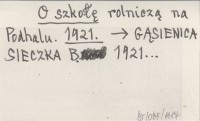 O szkołę rolniczą na
Podhalu. 1921. → GĄSIENICA
SIECZKA B. 1921...